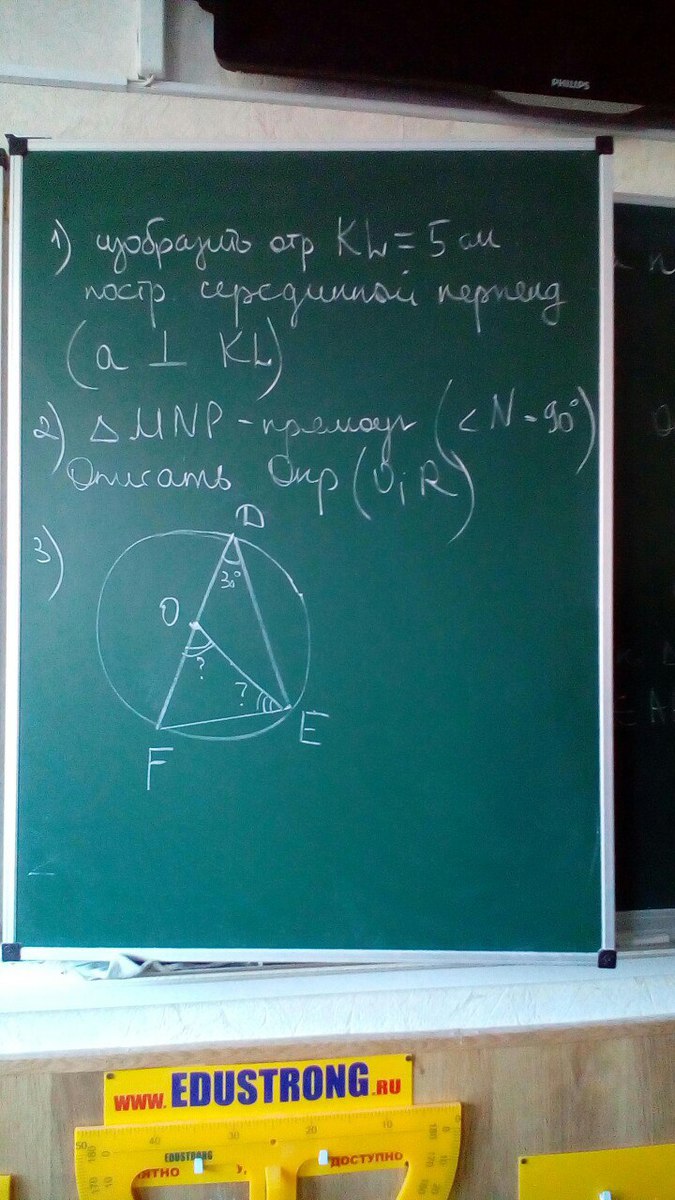 PHILIPS
1) изобразить отр KL = 5 см
постр серединный перпенд
(a ⊥ KL)
2) △ MNP - прямоуг (< N = 90°)
Описать Окр (O; R)
3)
D
30°
O
?
?
E
F
www.EDUSTRONG.RU
50 40 30 20 10
EDUSTRONG
ДОСТУПНО